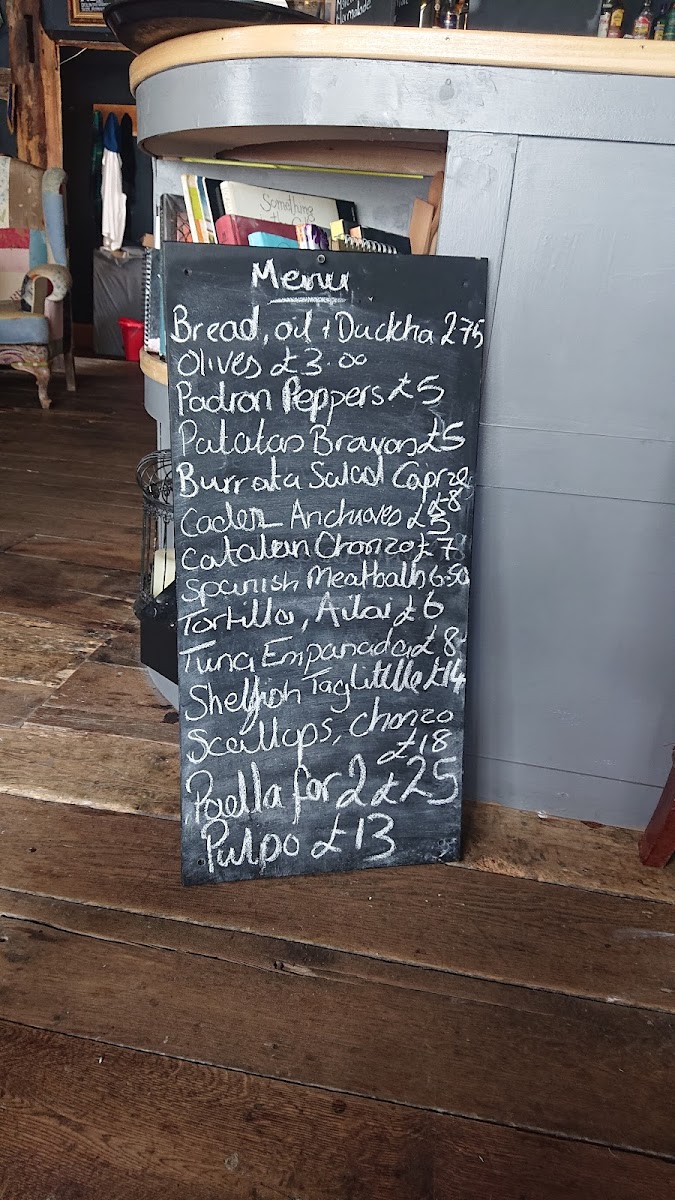 Marmalade
Something
Menu
Bread, oil + Duckha 275
Olives £3.00
Padron Peppers £5
Patatas Bravas £5
Burrata Salad Caprze
£8
Coder Anchoves £5
Catalan Chorizo £7
Spanish Meatballs 6.50
Tortilla, Ailai £6
Tuna Empanada £8
Shelfish Taglitelle £14
Scallops, chorizo
£18
Paella for 2 £25
Pulpo £13